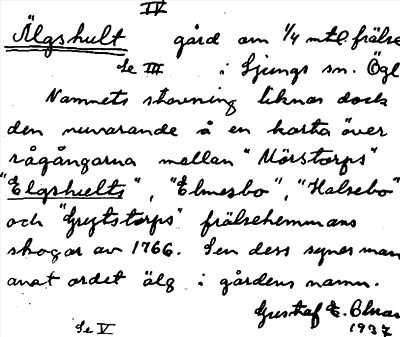 IV
Älgshult gård om 1/4 mtl. frälse
Se III i Ljungs sn. Ögl
Namnets stavning liknar dock
den nuvarande å en karta över
rågångarna mellan "Mörstorps"
"Elgshults", "Elmesbo", "Halsebo"
och "Grytstorps" frälsehemmans
skogar av 1766. Sen dess synes man
anat ordet älg i gårdens namn.
Gustaf E.
Se V 1937